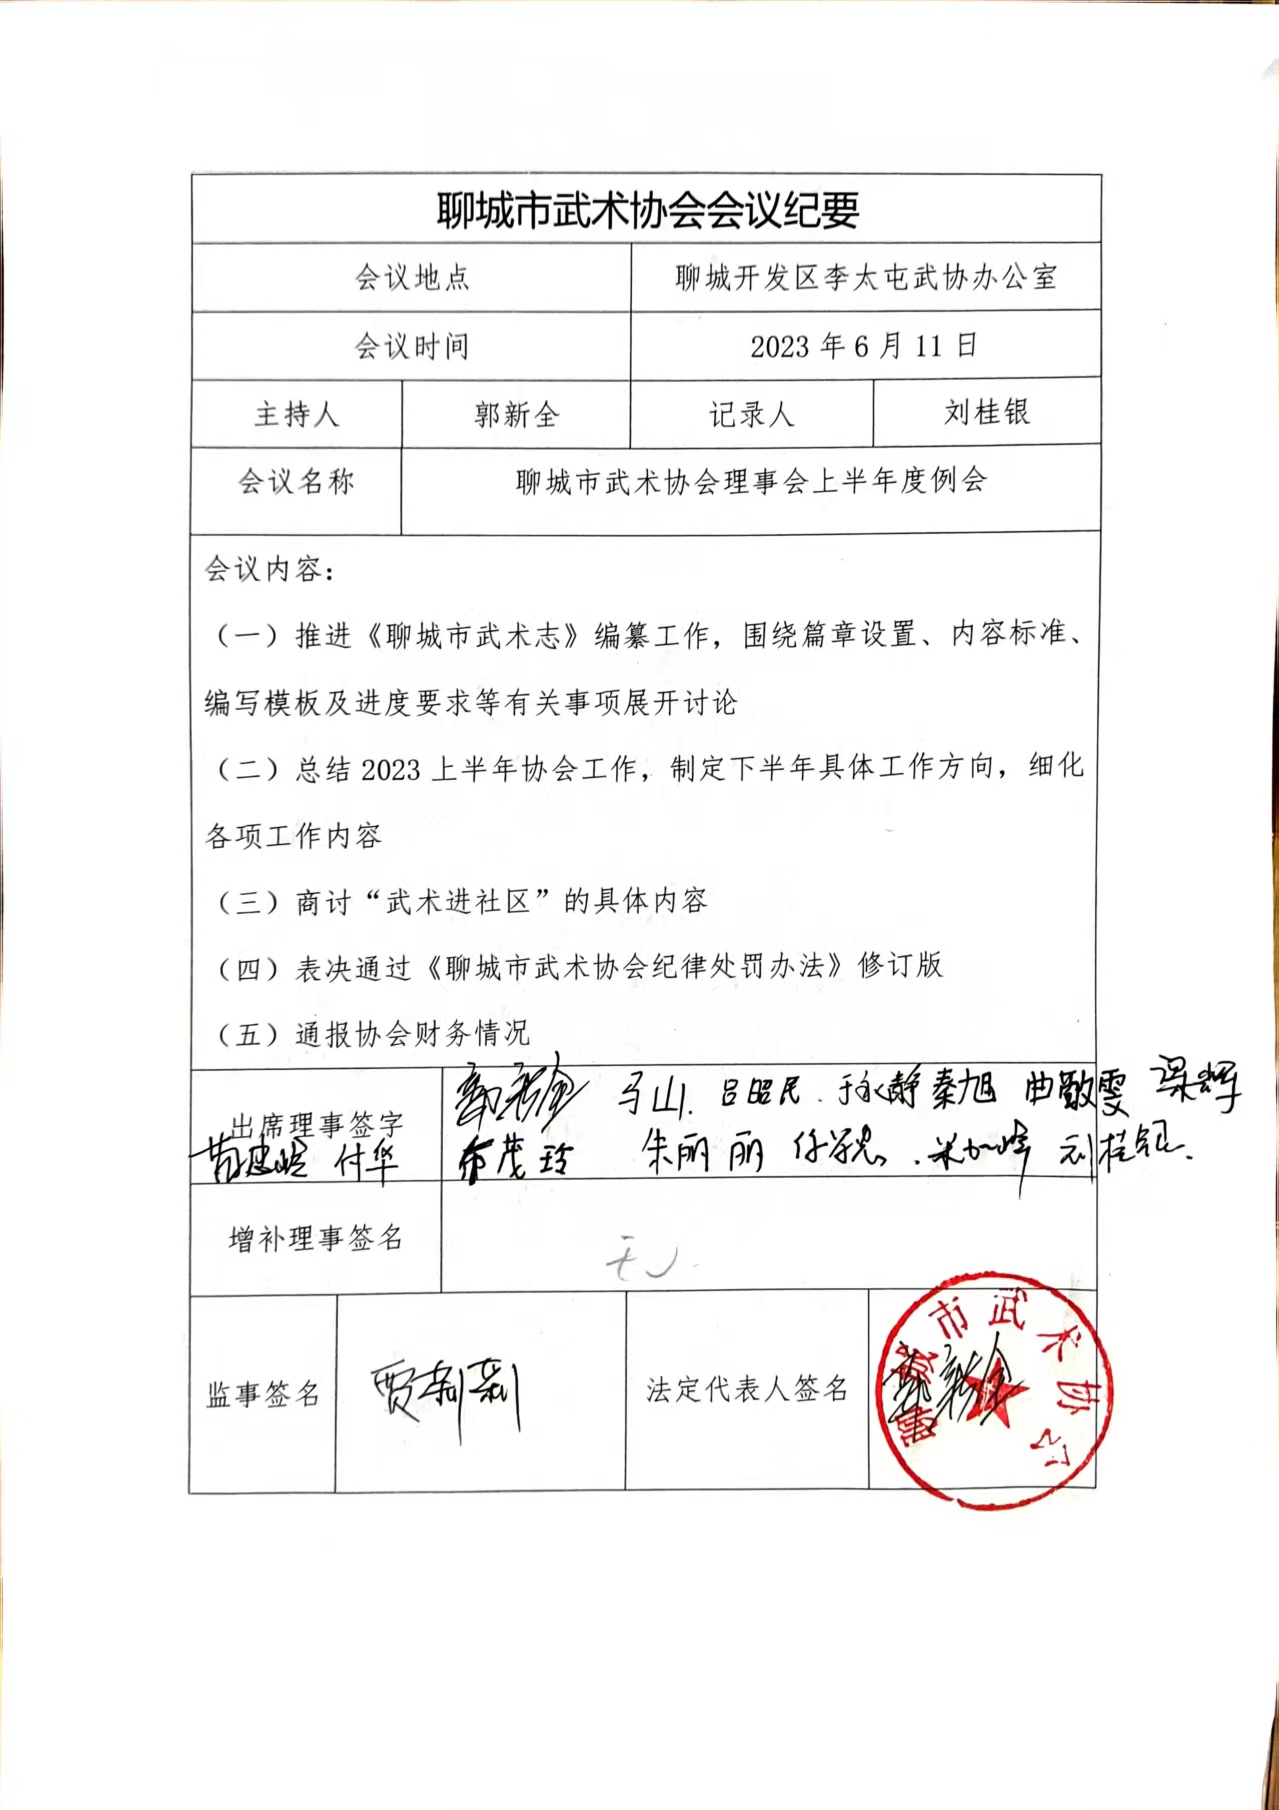 聊城市武术协会会议纪要
会议地点 聊城开发区李太屯武协办公室
会议时间 2023 年 6 月 11 日
主持人 郭新全 记录人 刘桂银
会议名称 聊城市武术协会理事会上半年度例会
会议内容：
（一）推进《聊城市武术志》编纂工作，围绕篇章设置、内容标准、
编写模板及进度要求等有关事项展开讨论
（二）总结 2023 上半年协会工作，制定下半年具体工作方向，细化
各项工作内容
（三）商讨“武术进社区”的具体内容
（四）表决通过《聊城市武术协会纪律处罚办法》修订版
（五）通报协会财务情况
郭新全 马山. 吕昭民. 于永静 秦旭 曲敬雯 梁辉
出席理事签字
付华 布茂玲 朱丽丽 刘桂银.
增补理事签名 无.
监事签名 贾新新 法定代表人签名 郭新全
聊城市武术协会